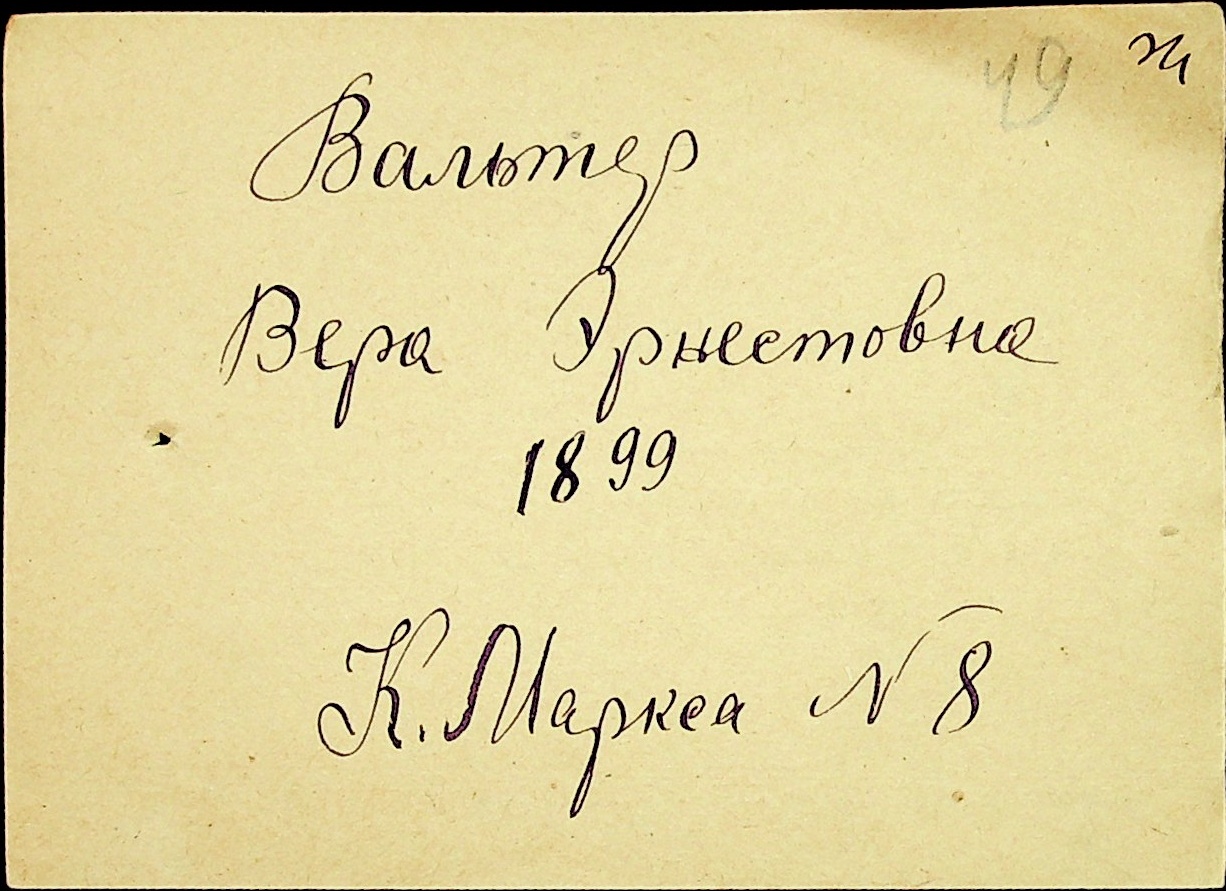 49 ж
Вальтер
Вера Эрнестовна
1899
К. Маркса № 8